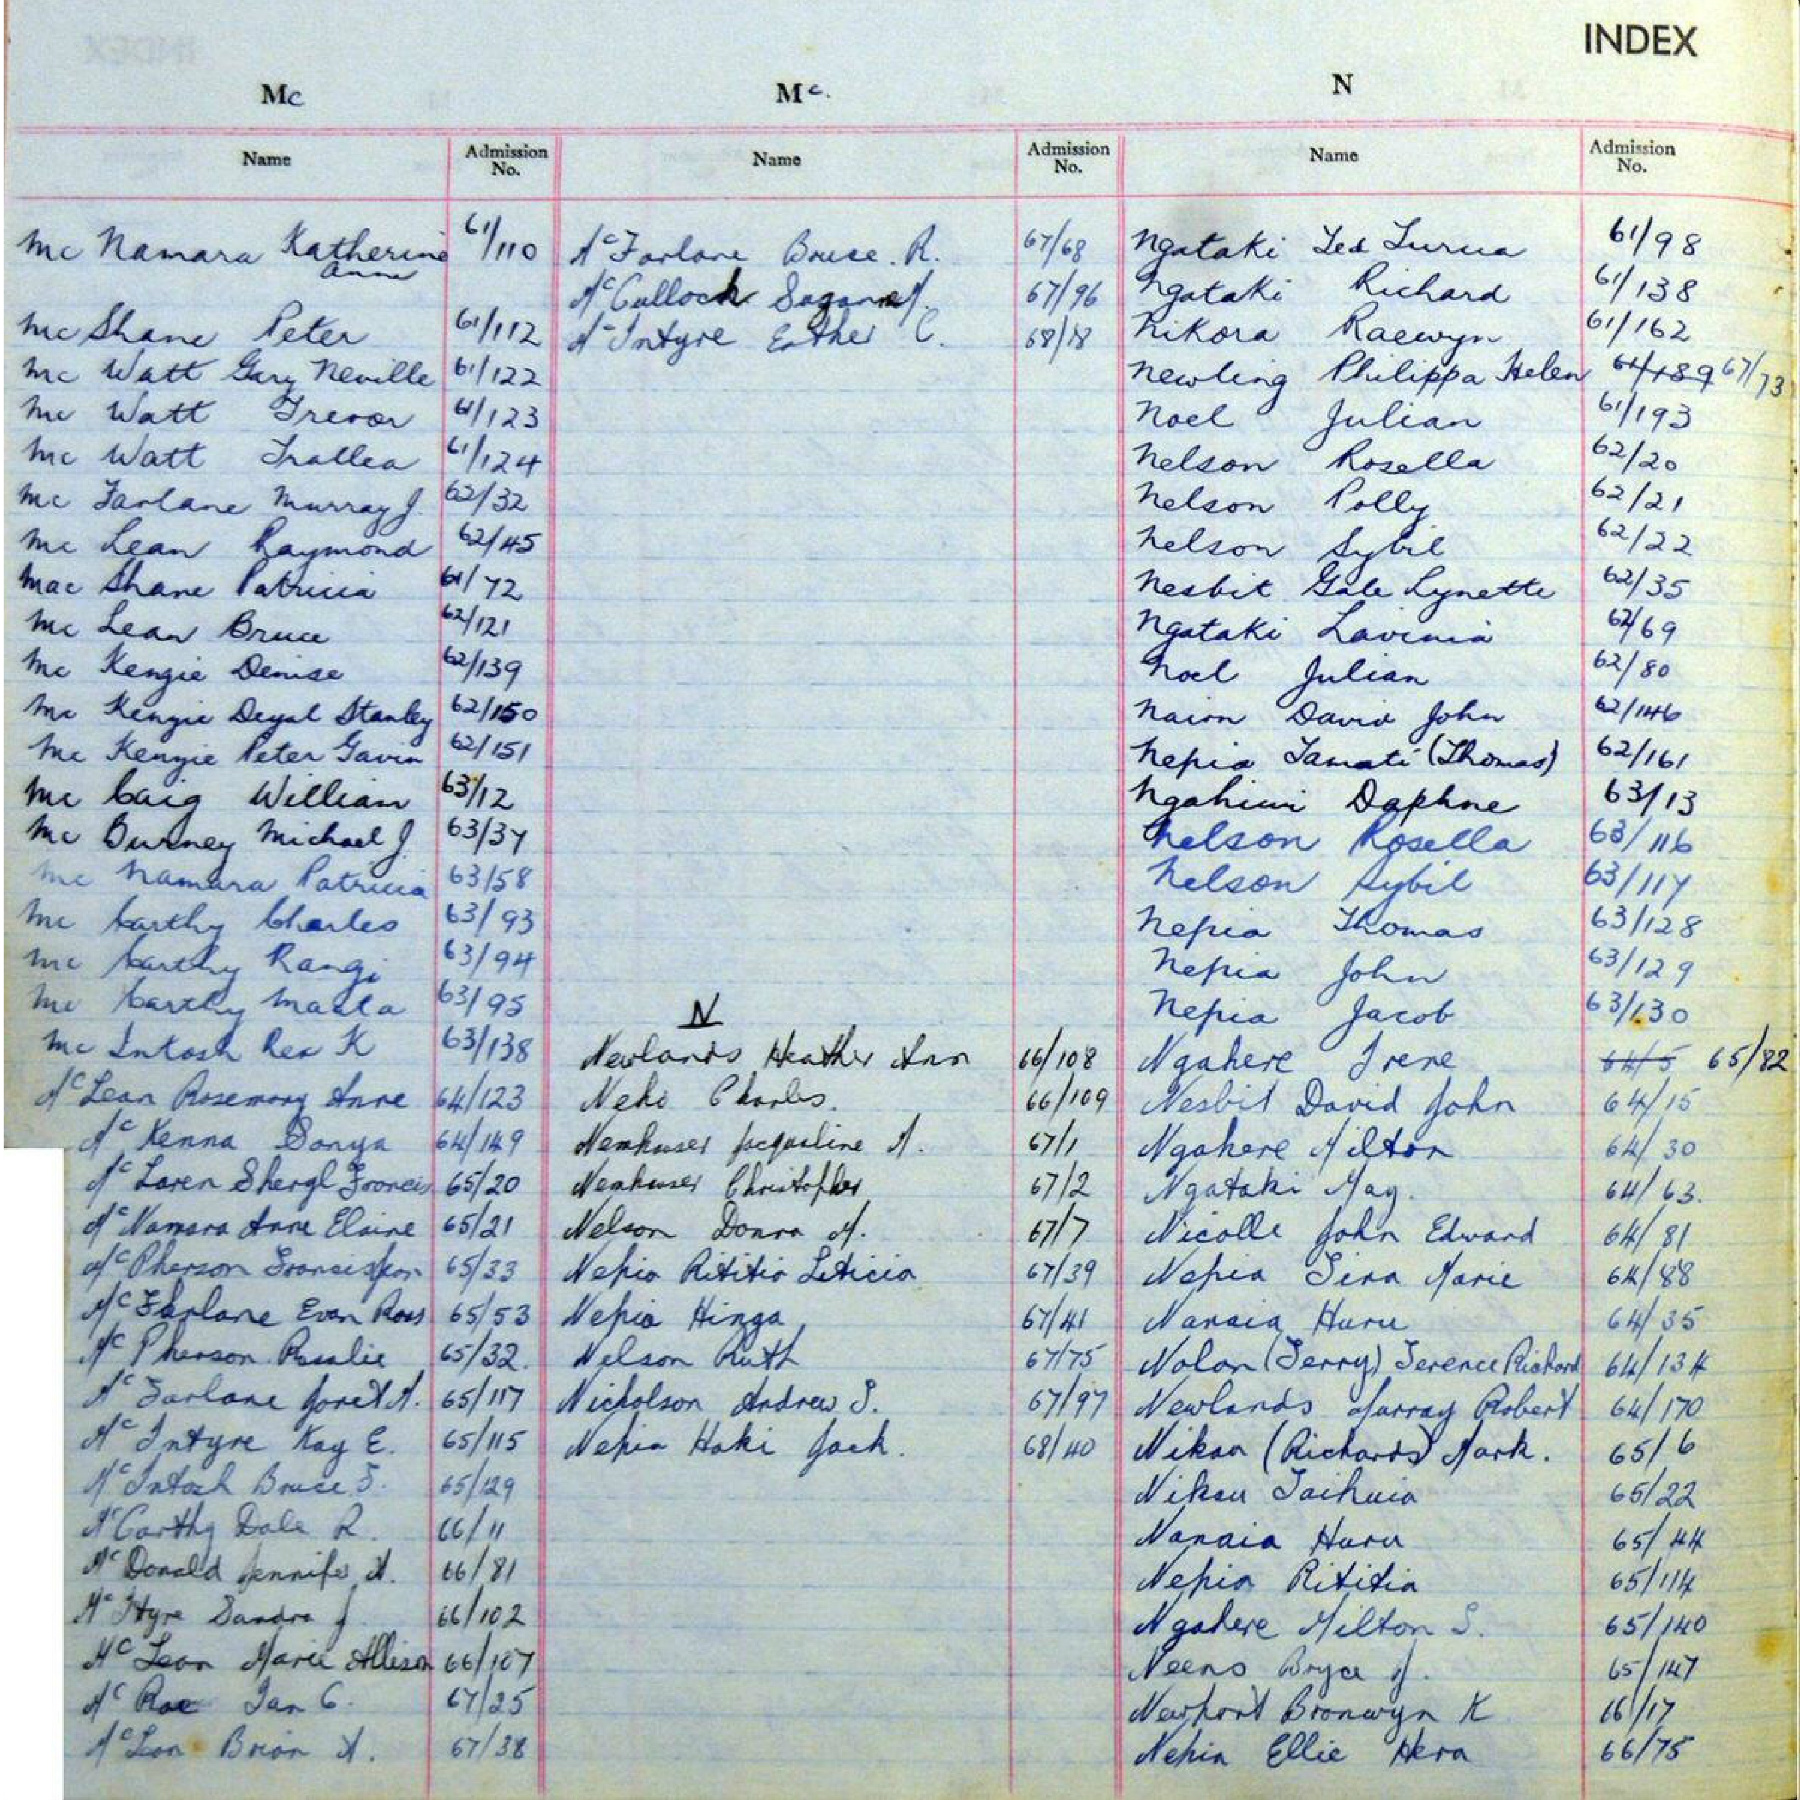 INDEX
Mc
Name
Admission
No.
Mc Namara Katherine 61/110
Anne
Mc Shane Peter 61/112
Mc Watt Gary Neville 61/122
Mc Watt Trevor 61/123
Mc Watt 61/124
Mc Farlane Murray J. 62/32
Mc Lean Raymond 62/45
Mac Shane Patricia 61/72
Mc Lean Bruce 62/121
Mc Kenzie Denise 62/139
Mc Kenzie Deyal Stanley 62/150
Mc Kenzie Peter Gavin 62/151
Mc Caig William 63/12
Mc Burney Michael J. 63/37
Mc Namara Patricia 63/58
Mc Carthy Charles 63/93
Mc Carthy Rangi 63/94
Mc Carthy Maata 63/95
Mc Intosh Rex K 63/138
McLean Rosemary Anne 64/123
McKenna Sonya 64/149
McLaren Sheryl Francis 65/20
McNamara Anne Elaine 65/21
McPherson Francis 65/33
McFarlane Evan Ross 65/53
McPherson Rosalie 65/32
McFarlane Janet M. 65/117
McIntyre Kay E. 65/115
McIntosh Bruce 65/129
McCarthy Dale R. 66/11
McDonald Jennifer 66/81
Sandra J. 66/102
McLean Marie Allison 66/107
McRae Ian C. 67/25
Brian A. 67/38
Mc.
Name
Admission
No.
McFarlane Bruce. R. 67/68
McCullock 67/96
McIntyre Esther C. 68/18
N
Newlands Heather Ann 66/108
Neho Charles. 66/109
Jacqueline M. 67/1
Christopher 67/2
Nelson Donna M. 67/7
Nepia Rititia Leticia 67/39
Nepia Hinga 67/41
Nelson Ruth 67/75
Nicholson Andrew S. 67/97
Nepia Haki Jack. 68/40
N
Name
Admission
No.
Ngataki Ted Turua 61/98
Ngataki Richard 61/138
Nikora Raewyn 61/162
Newling Philippa Helen 61/189 67/73
Noel Julian 61/193
Nelson Rosella 62/20
Nelson Polly 62/21
Nelson Sybil 62/22
Nesbit Gale Lynette 62/35
Ngataki Lavinia 62/69
Noel Julian 62/80
Nairn David John 62/146
Nepia Tamati (Thomas) 62/161
Ngahiwi Daphne 63/13
Nelson Rosella 63/116
Nelson Sybil 63/117
Nepia Thomas 63/128
Nepia John 63/129
Nepia Jacob 63/130
Ngahere Irene 64/5 65/82
Nesbit David John 64/15
Ngahere Milton 64/30
Ngataki May. 64/63.
Nicolle John Edward 64/81
Nepia Tina Marie 64/88
Nanaia Huru 64/35
Nolan (Terry) Terence Richard 64/134
Newlands Murray Robert 64/170
Nikau (Richards) Mark. 65/6
Nikau Taihuia 65/22
Nanaia Huru 65/44
Nepia Rititia 65/114
Ngahere Milton S. 65/140
Neens Bryce M. 65/147
Newport Bronwyn K 66/17
Nepia Ellie Hera 66/75